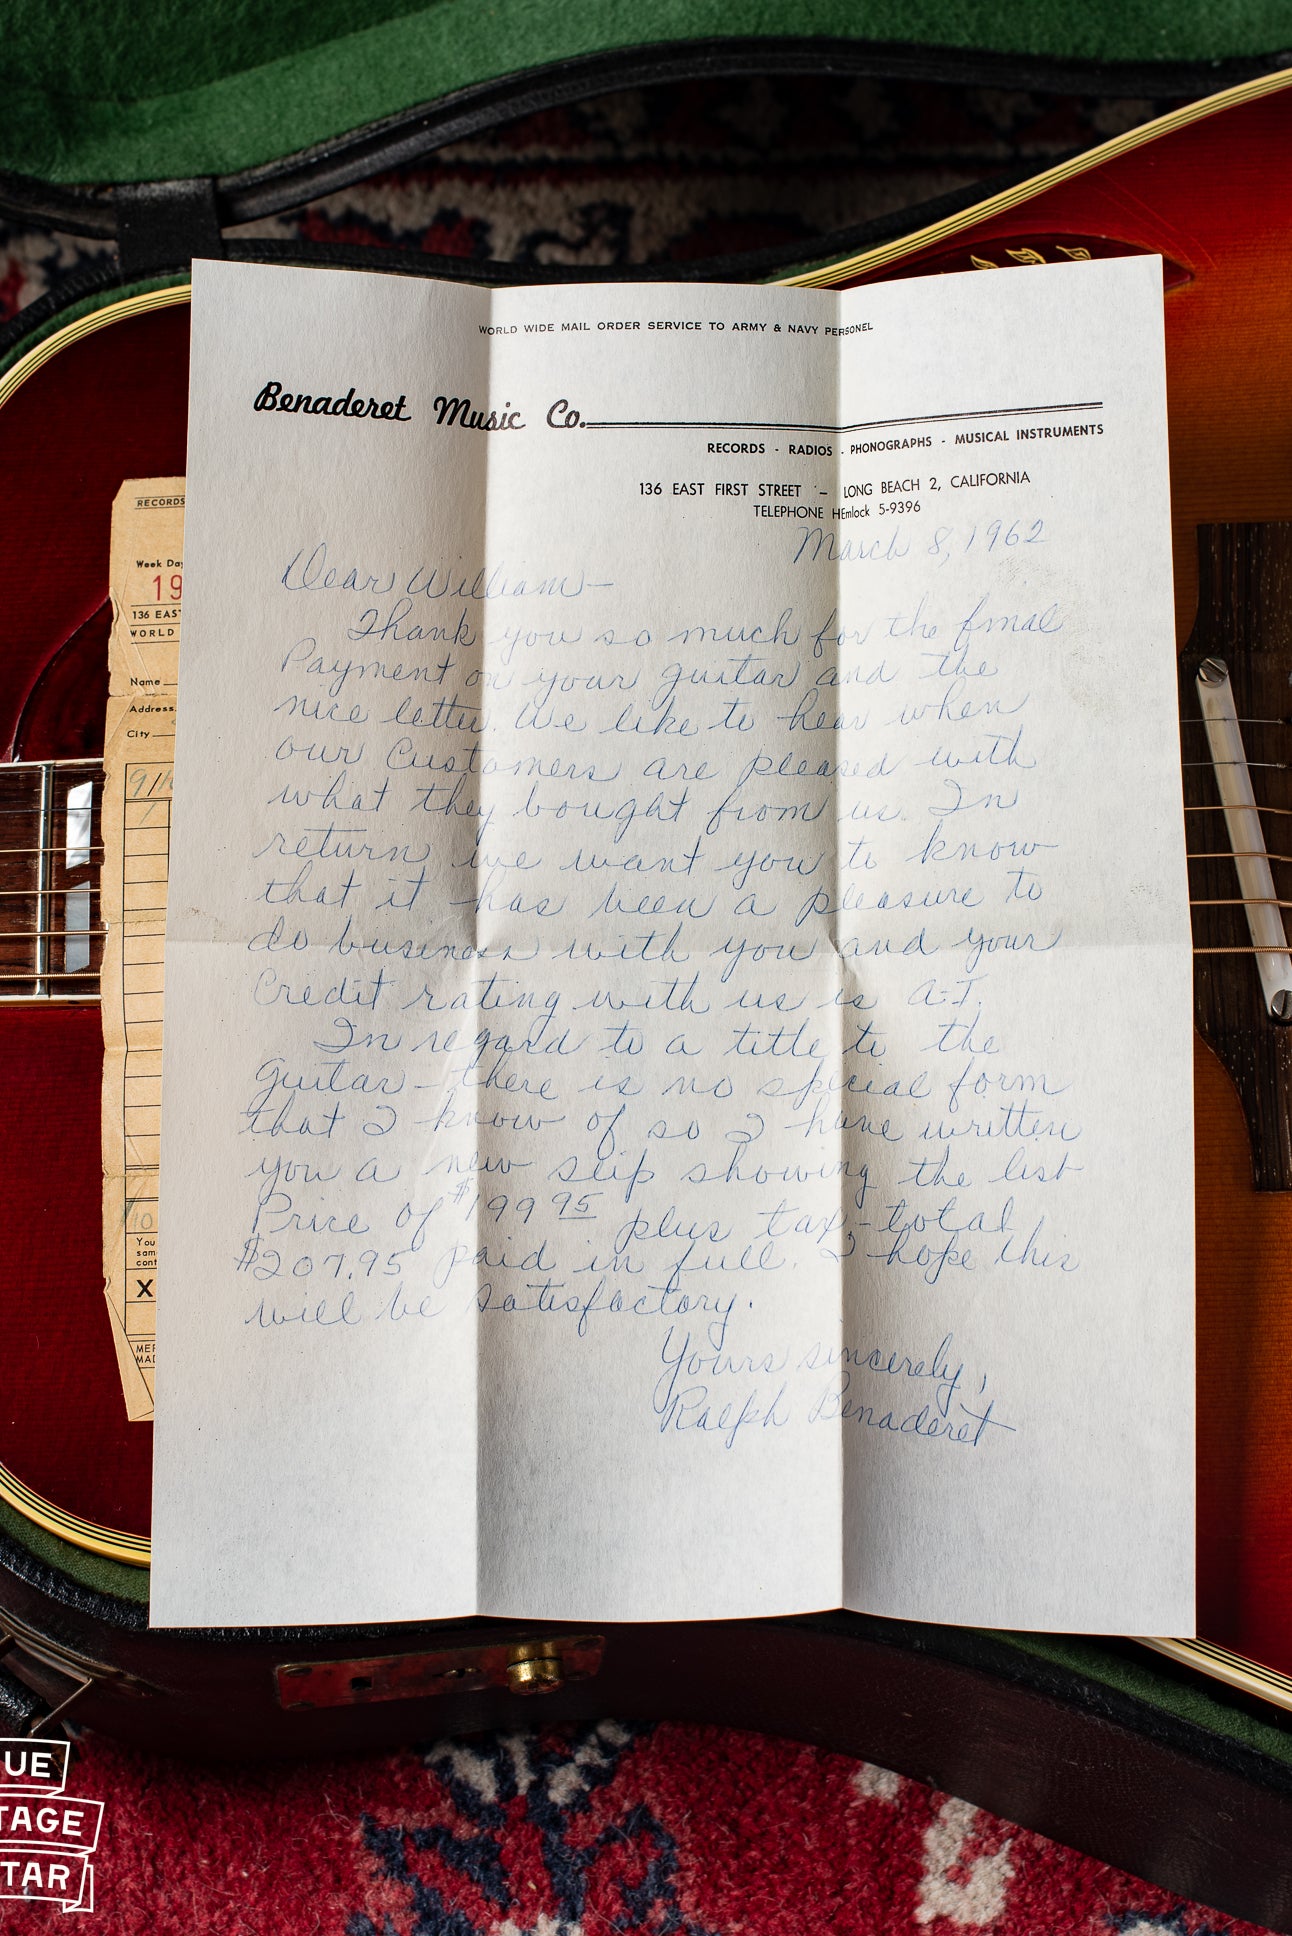 WORLD WIDE MAIL ORDER SERVICE TO ARMY & NAVY PERSONEL
Benaderet Music Co.
RECORDS - RADIOS - PHONOGRAPHS - MUSICAL INSTRUMENTS
136 EAST FIRST STREET - LONG BEACH 2, CALIFORNIA
TELEPHONE HEmlock 5-9396
March 8, 1962
Dear William—
Thank you so much for the final
Payment on your guitar and the
nice letter. We like to hear when
our Customers are pleased with
what they bought from us. In
return we want you to know
that it has been a pleasure to
do business with you and your
Credit rating with us is A-1.
In regard to a title to the
guitar – there is no special form
that I know of so I have written
you a new slip showing the list
Price of $199 95 plus tax - total
$207.95 paid in full. I hope this
will be satisfactory.
Yours sincerely,
Ralph Benaderet
RECORDS
Week Day
19
136 EAS
WORLD
Name
Address
City
9/
10
You
sam
cont
X
MER
MAD
UE
TAGE
TAR